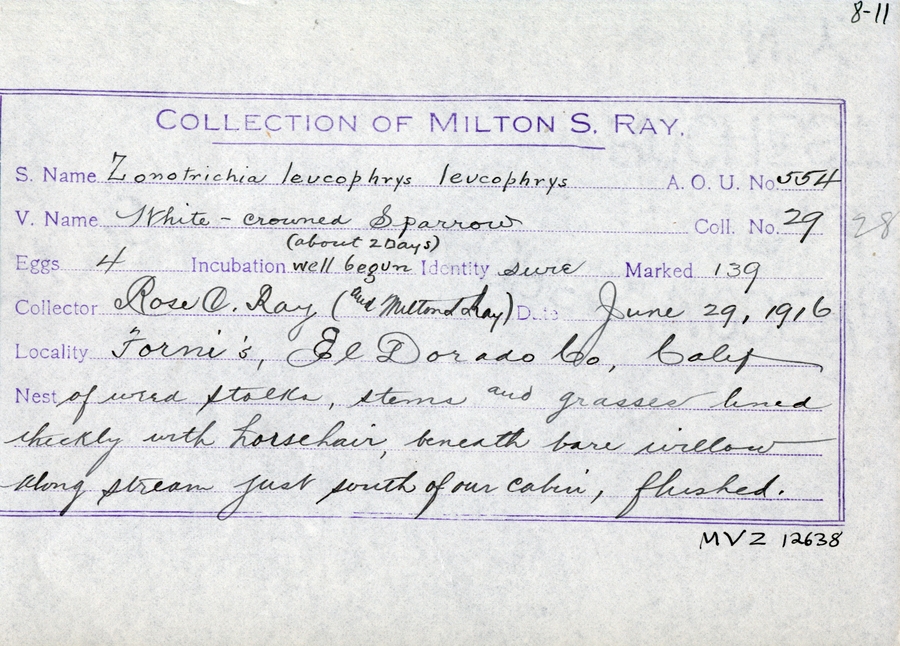 8-11
COLLECTION OF MILTON S. RAY.
S. Name Zonotrichia leucophrys leucophrys A. O. U. No. 554
V. Name White-crowned Sparrow Coll. No. 29 28
(about 2 Days)
Eggs 4 Incubation well begun Identity sure Marked 139
Collector Rose C. Ray (and Milton S Ray) Date June 29, 1916
Locality Forni's, El Dorado Co, Calif
Nest of weed stalks, stems and grasses lined
thickly with horsehair, beneath bare willow
along stream just south of our cabin, flushed.
MVZ 12638